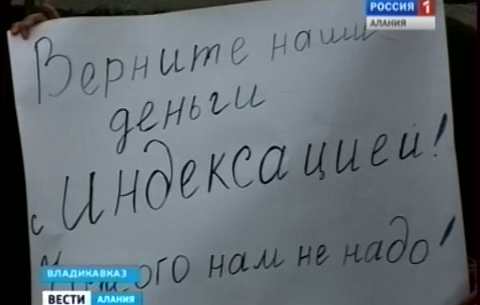 РОССИЯ 1
АЛАНИЯ
Верните наши
деньги
с Индексацией!
нам не надо!
ВЛАДИКАВКАЗ
ВЕСТИ АЛАНИЯ